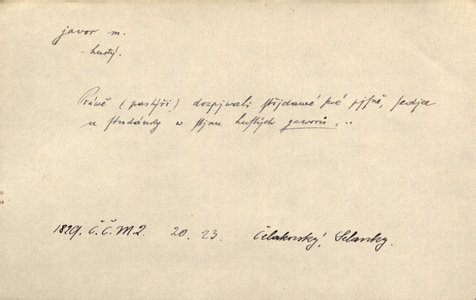 javor m.
hustý.
Právě (pastýři) dozpjwali střjdawé své pjsně, sedjce
u studánky w stjnu hustých gaworů, ..
1829. Č.Č.M.2. 20. 23. Čelakovský, Selanky.